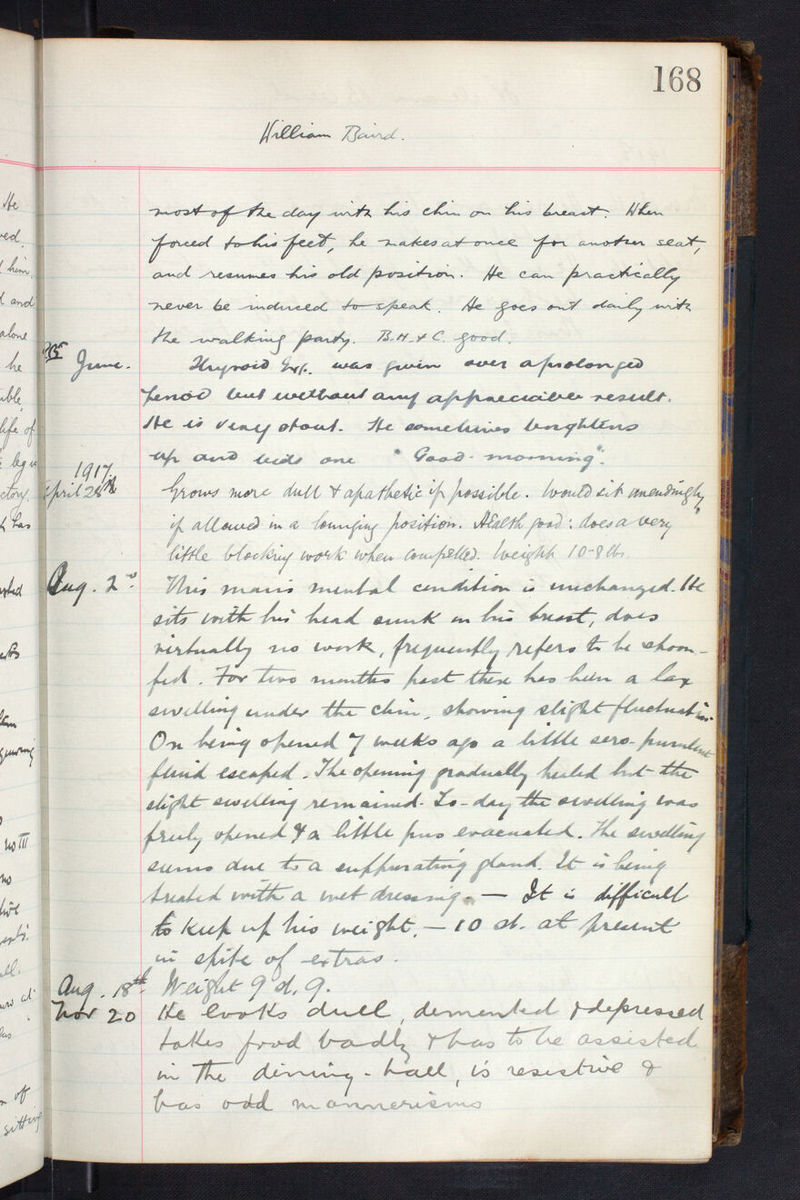 168
William Baird.
most of the day with his chin on his breast. When
forced to his feet, he makes at once for another seat,
and resumes his old position. He can practically
never be induced to speak. He goes out daily with
the walking party. B.H. & C. good.
June. Thyroid Ext. was given over a prolonged
period but without any appreciable result.
He is very stout. He sometimes brightens
up and bids one "Good-morning".
1917.
April 28th Grows more dull & apathetic if possible. Would sit unendingly
if allowed in a lounging position. Health good: does a very
little blocking work when compelled. Weight 10-8 lbs.
Aug. 2nd This man's mental condition is unchanged. He
sits with his head sunk on his breast, does
virtually no work, frequently refers to be spoon-
fed. For two months past there has been a lax
swelling under the chin, showing slight fluctuation.
On being opened 7 weeks ago a little sero-purulent
fluid escaped. The opening gradually healed but the
slight swelling remained. To-day the swelling was
freely opened & a little pus evacuated. The swelling
seems due to a suppurating gland. It is being
treated with a wet dressing. — It is difficult
to keep up his weight, — 10 st. at present
in spite of extras.
Aug. 18th Weight 9 st. 9.
Nov 20 He looks dull, demented & depressed
takes food badly & has to be assisted
in the dining-hall, is resistive &
has odd mannerisms